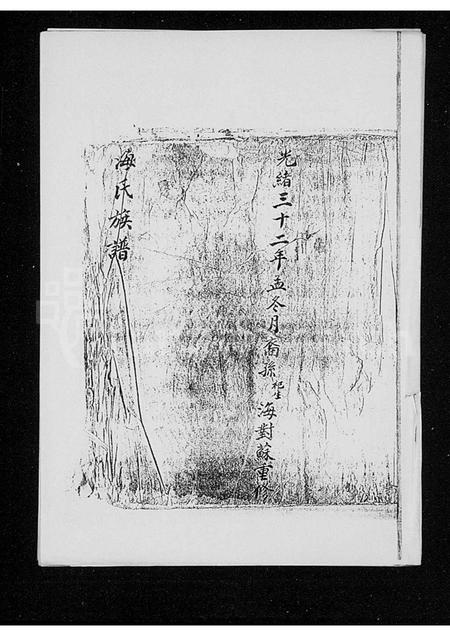 光緒三十二年孟冬月裔孫祀生海對蘇重修
海氏族譜